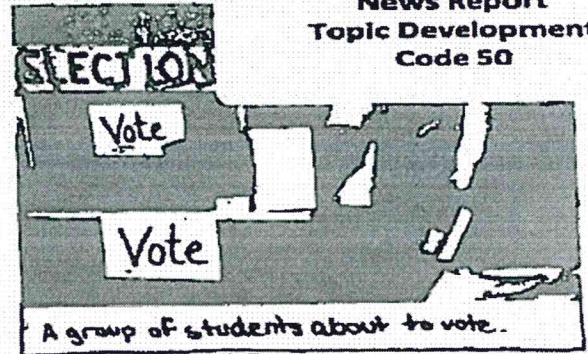 News Report
Topic Development
Code 50
ELECTION
Vote
Vote
A group of students about to vote.